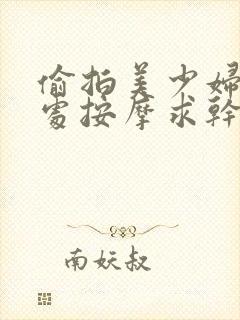 偷拍美少婦
處按摩求幹
南妖叔